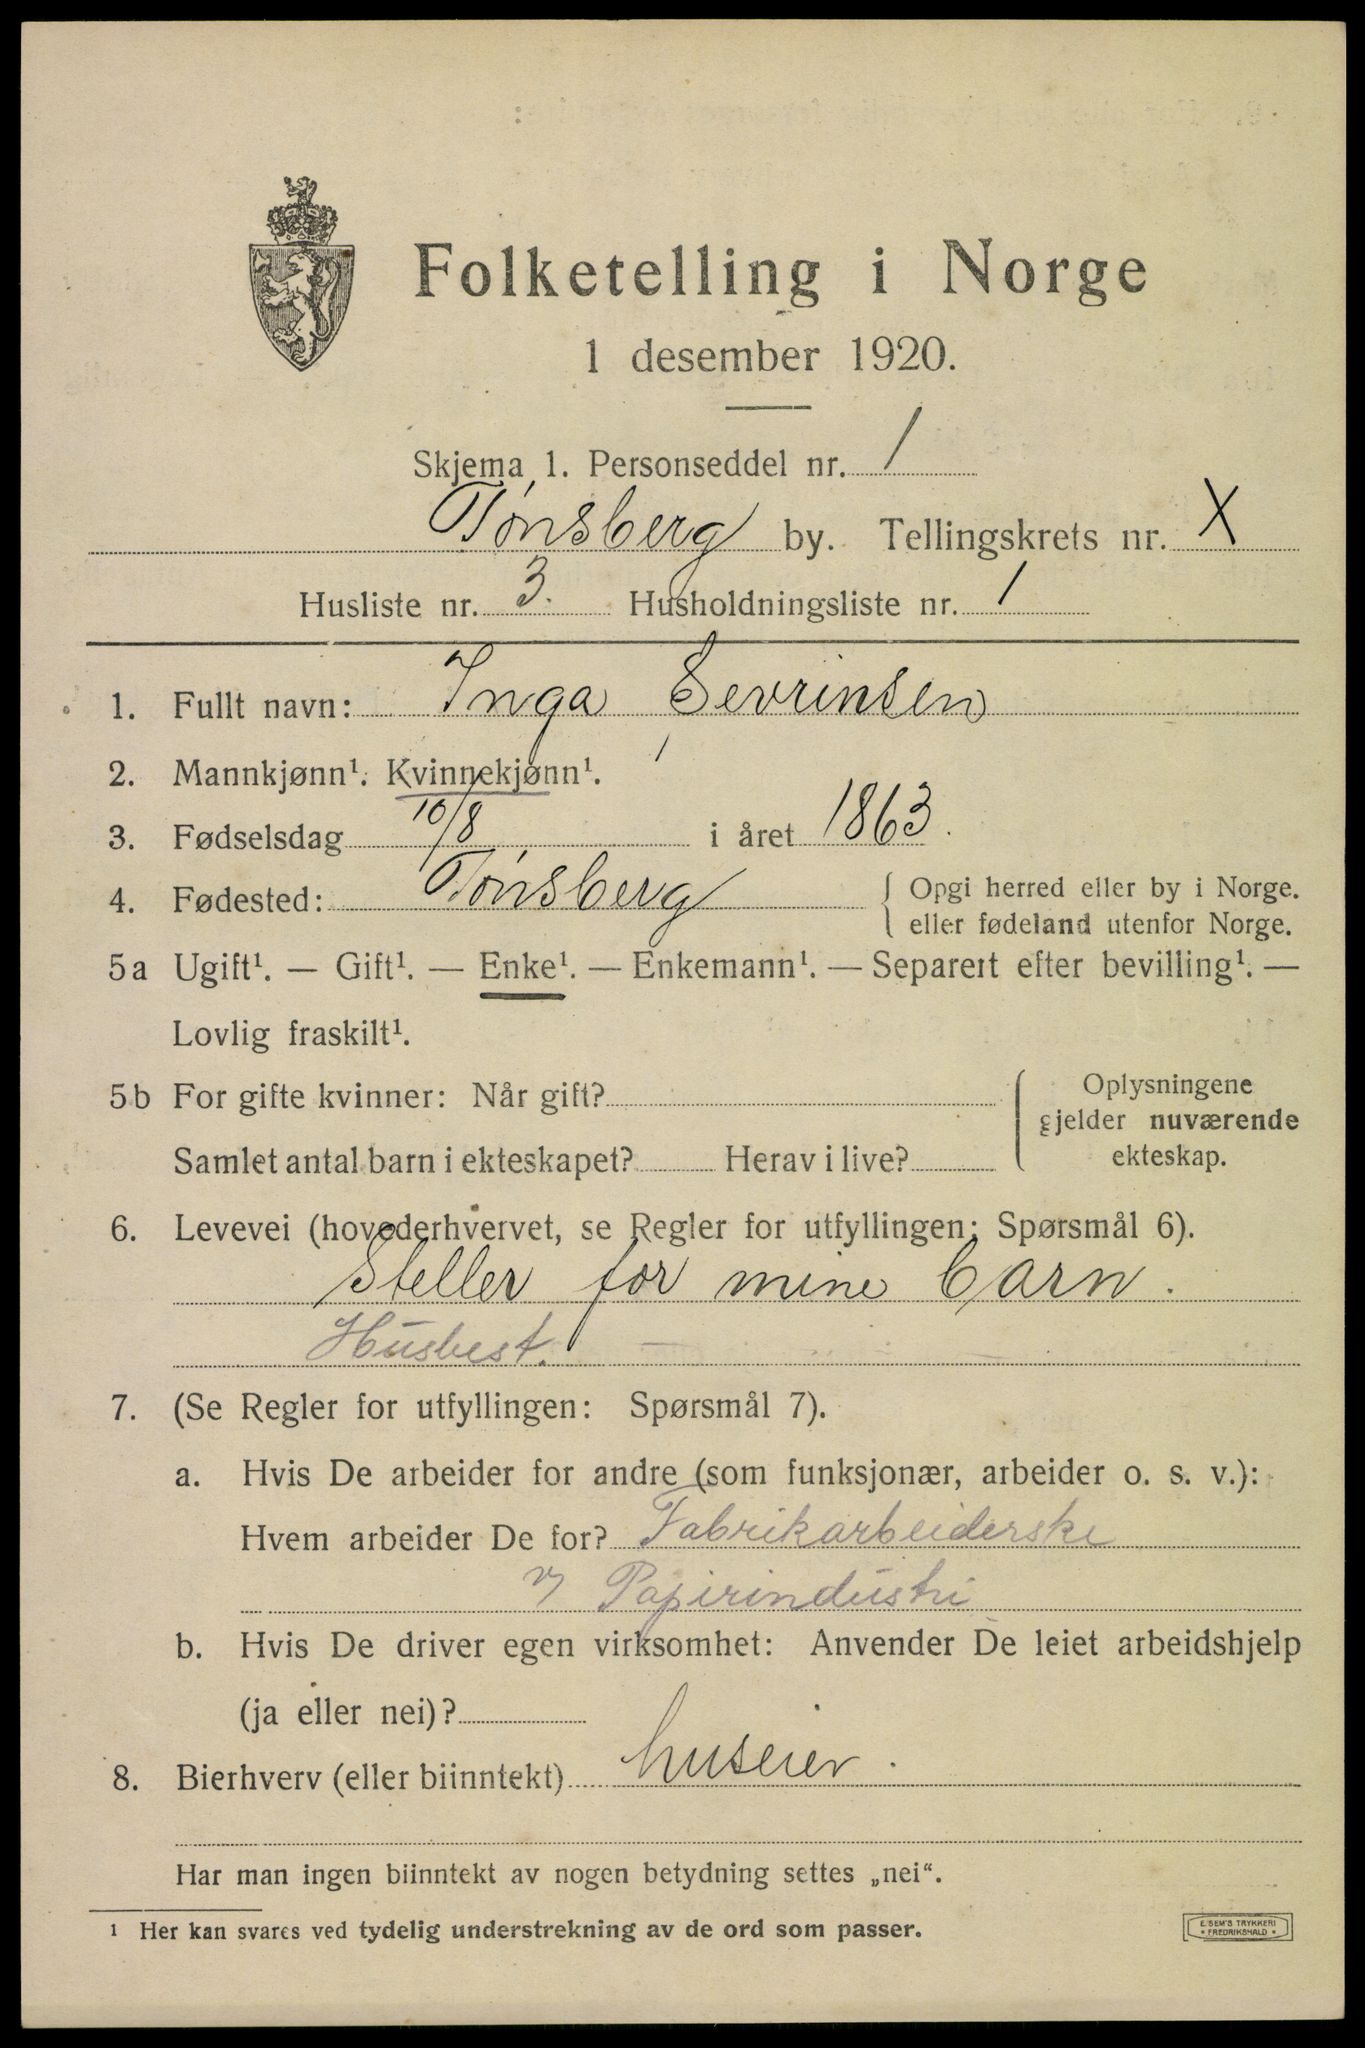 Folketelling i Norge
1 desember 1920.
Skjema 1. Personseddel nr. 1
Tønsberg by. Tellingskrets nr. X
Husliste nr. 3. Husholdningsliste nr. 1
1. Fullt navn: Inga Sevrinsen
2. Mannkjønn¹. Kvinnekjønn¹.
3. Fødselsdag 10/8 i året 1863.
4. Fødested: Tønsberg { Opgi herred eller by i Norge.
eller fødeland utenfor Norge.
5a Ugift¹. — Gift¹. — Enke¹. — Enkemann¹. — Separert efter bevilling¹. —
Lovlig fraskilt¹.
5b For gifte kvinner: Når gift? Oplysningene
gjelder nuværende
Samlet antal barn i ekteskapet? Herav i live? ekteskap.
6. Levevei (hovederhvervet, se Regler for utfyllingen; Spørsmål 6).
Steller for mine barn.
Husbest.
7. (Se Regler for utfyllingen: Spørsmål 7).
a. Hvis De arbeider for andre (som funksjonær, arbeider o. s. v.):
Hvem arbeider De for? Fabrikarbeiderske
v/ Papirindustri
b. Hvis De driver egen virksomhet: Anvender De leiet arbeidshjelp
(ja eller nei)?
8. Bierhverv (eller biinntekt) huseier.
Har man ingen biinntekt av nogen betydning settes „nei“.
¹ Her kan svares ved tydelig understrekning av de ord som passer.
E. SEM'S TRYKKERI
* FREDRIKSHALD *